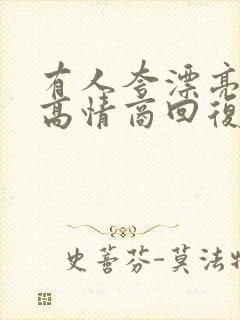 有人夸漂亮
高情商回復
史蒈芬-莫法特